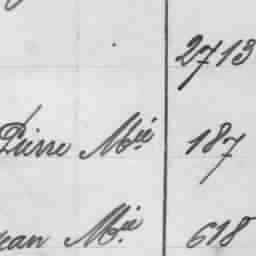 2713
Pierre Mie 187
ean Mie 618